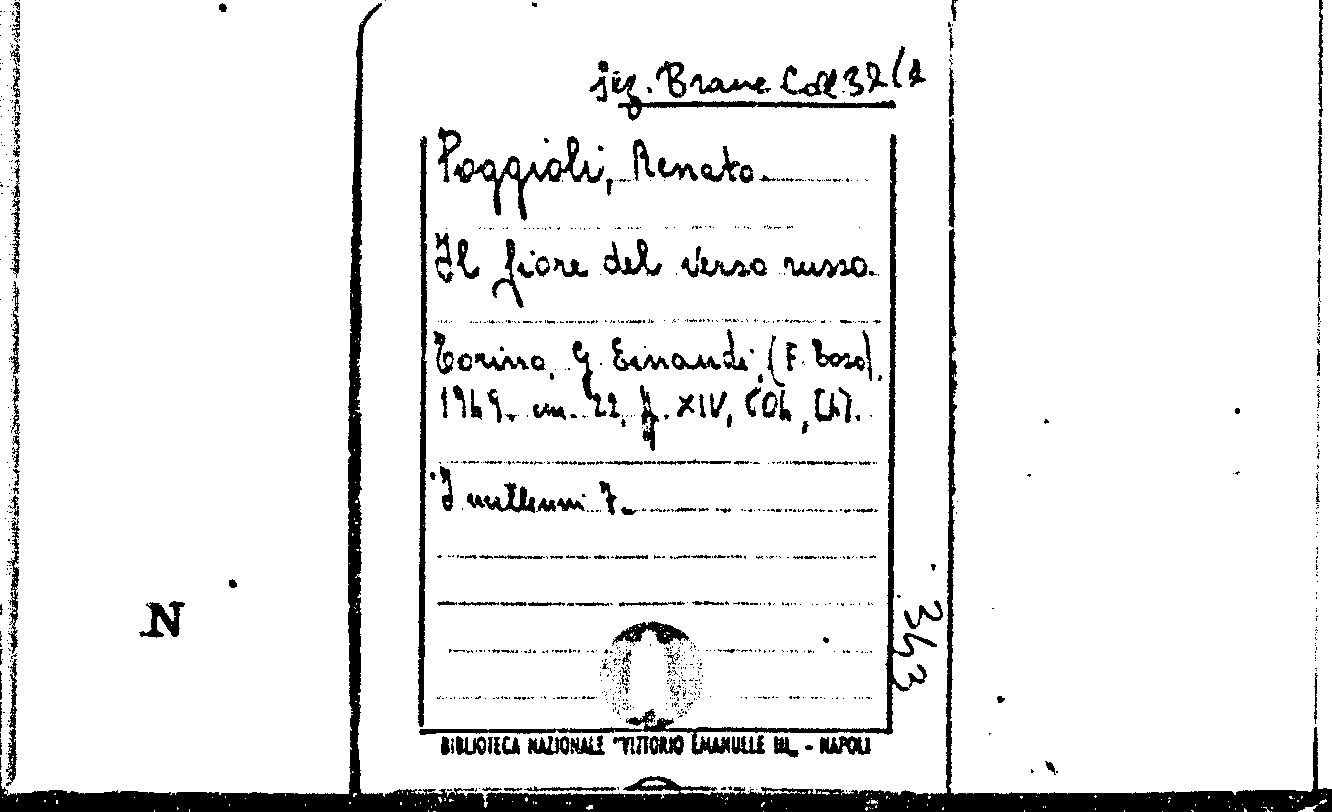 Sez. Branc Coll 32 (1
Poggioli, Renato.
Il fiore del verso russo.
Torino, G. Einaudi, (F. Toso),
1949. cm. 22, p. XIV, 604, [4].
I millenni 7.
343
N
BIBLIOTECA NAZIONALE "VITTORIO EMANUELE III„ - NAPOLI